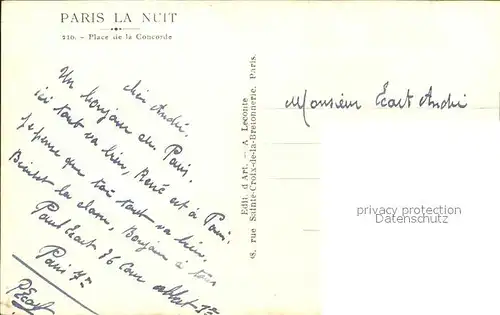 PARIS LA NUIT
210. - Place de la Concorde
cher André,
Un bonjour de Paris,
ici tout va bien, René est à Paris,
Je pense que toi tout va bien,
Bientôt la classe, Bonjour à tous
Paul Écart 76 Cour
Paris 7e
PEcart
Edit. d'Art. - A. Leconte
48, rue Sainte-Croix-de-la-Bretonnerie, Paris.
Monsieur Écart André
privacy protection
oldthing.de